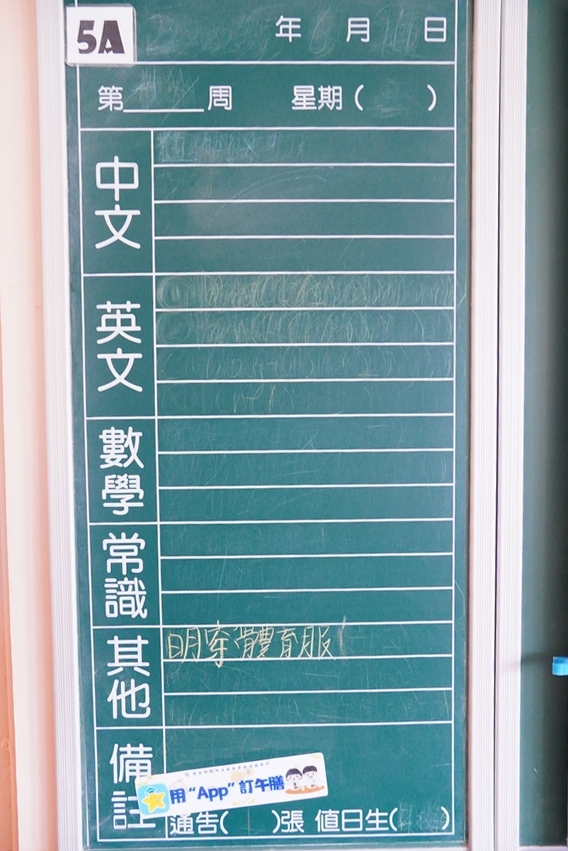 5A
年 月 日
第 周 星期( )
中文
英文
數學
常識
其他
明穿體育服
備註
用“App”訂午膳
通告( )張 值日生( )